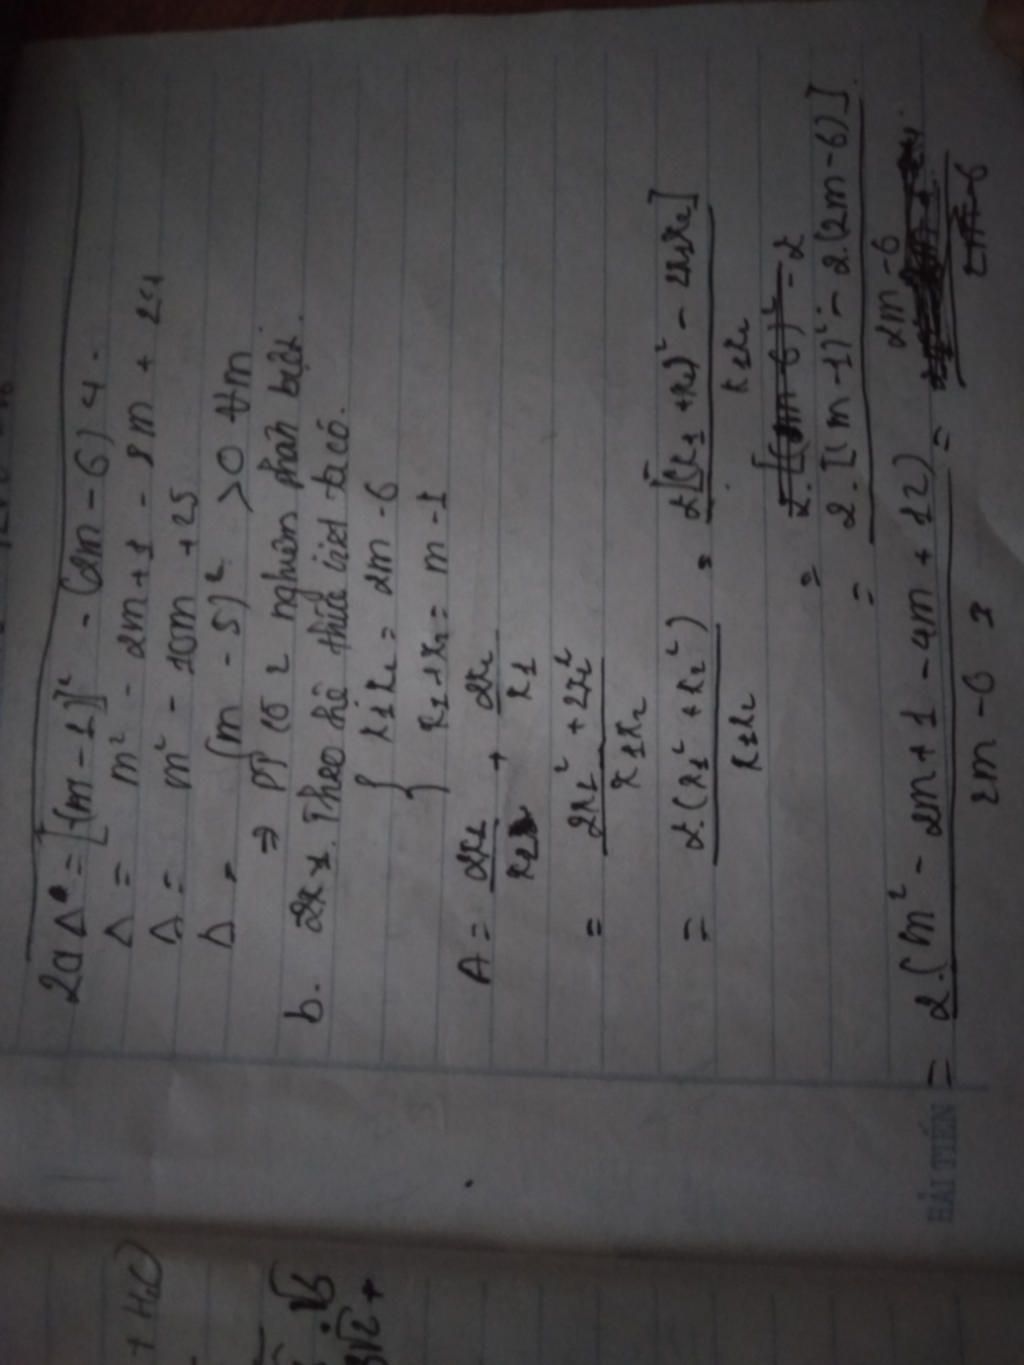 2a Δ = [-(m-1)]² - (2m-6)4.
Δ = m² - 2m+1 - 8m + 24
Δ = m² - 10m + 25
Δ = (m-5)² > 0 ∀m
⇒ PT có 2 nghiệm phân biệt.
b. Theo hệ thức viet ta có.
{ x1x2 = 2m-6
x1+x2 = m-1
A = 2x1/x2 + 2x2/x1
= 2x1² + 2x2² / x1x2
= 2.(x1² + x2²) / x1x2 = 2[(x1+x2)² - 2x1x2] / x1x2
=
= 2.[(m-1)² - 2.(2m-6)] / 2m-6
= 2.(m² - 2m+1 - 4m+12) / 2m-6 =
HẢI TIẾN
+ H2O